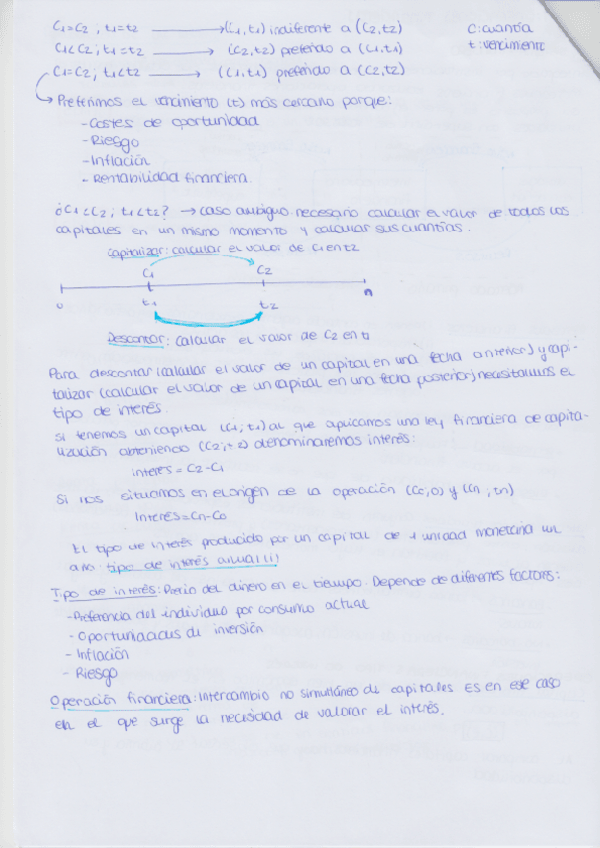 C1=C2 ; t1=t2 → (C1, t1) indiferente a (C2, t2) C: cuantía
C1<C2 ; t1=t2 → (C2, t2) preferido a (C1, t1) t: vencimiento
C1=C2 ; t1<t2 → (C1, t1) preferido a (C2, t2)
→ Preferimos el vencimiento (t) más cercano porque:
- Costes de oportunidad
- Riesgo
- Inflación
- Rentabilidad financiera.
¿C1<C2 ; t1<t2? → caso ambiguo. necesario calcular el valor de todos los
capitales en un mismo momento y calcular sus cuantías.
Capitalizar: calcular el valor de C1 en t2
C1 C2
0 t1 t2 n
Descontar: Calcular el valor de C2 en t1
Para descontar (calcular el valor de un capital en una fecha anterior) y capi-
talizar (calcular el valor de un capital en una fecha posterior) necesitamos el
tipo de interés.
Si tenemos un capital (C1; t1) al que aplicamos una ley financiera de capita-
lización obteniendo (C2; t2) denominaremos interés:
interés = C2-C1
Si nos situamos en el origen de la operación (C0, 0) y (Cn, tn)
Interés = Cn-C0
El tipo de interés producido por un capital de 1 unidad monetaria un
año: tipo de interés anual (i)
Tipo de interés: Precio del dinero en el tiempo. Depende de diferentes factores:
- Preferencia del individuo por consumo actual
- Oportunidades de inversión
- Inflación
- Riesgo
Operación financiera: Intercambio no simultáneo de capitales es en ese caso
en el que surge la necesidad de valorar el interés.